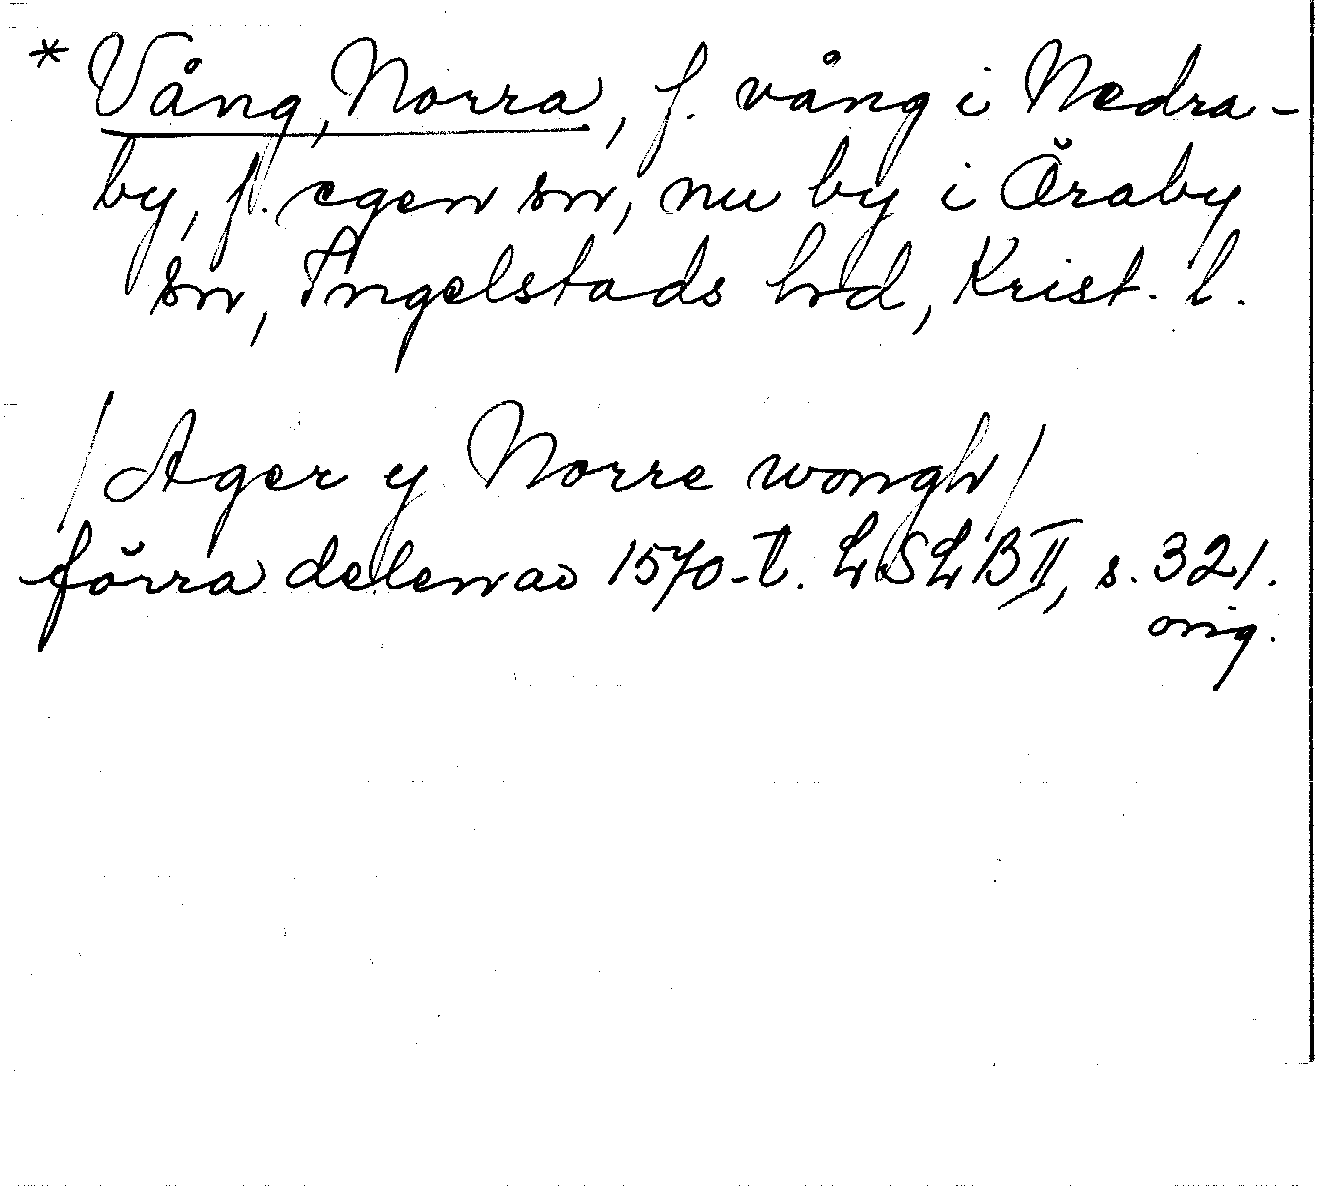 * Vång, Norra, f. vång i Nedra-
by, f. egen sn, nu by i Öraby
sn, Ingelstads hrd, Krist. l.
/Ager y Norre wongh/
förra delen av 1570-t. LSLB II, s. 321.
orig.